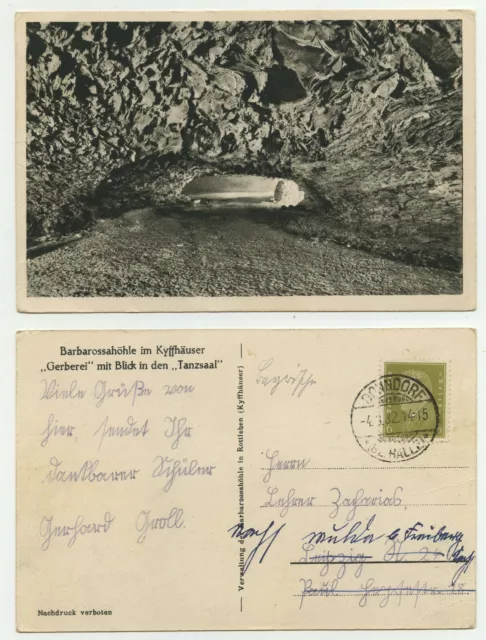 Barbarossahöhle im Kyffhäuser
„Gerberei" mit Blick in den „Tanzsaal"
Viele Grüße von
hier, sendet Ihr
dankbarer Schüler
Gerhard Groll.
Nachdruck verboten
Verwaltung der Barbarossahöhle in Rottleben (Kyffhäuser)
DONNDORF
32.14-15
Herrn
Lehrer Zacharias,
nach Mulda b Freiberg
Leipzig N 24
Sach
Paul